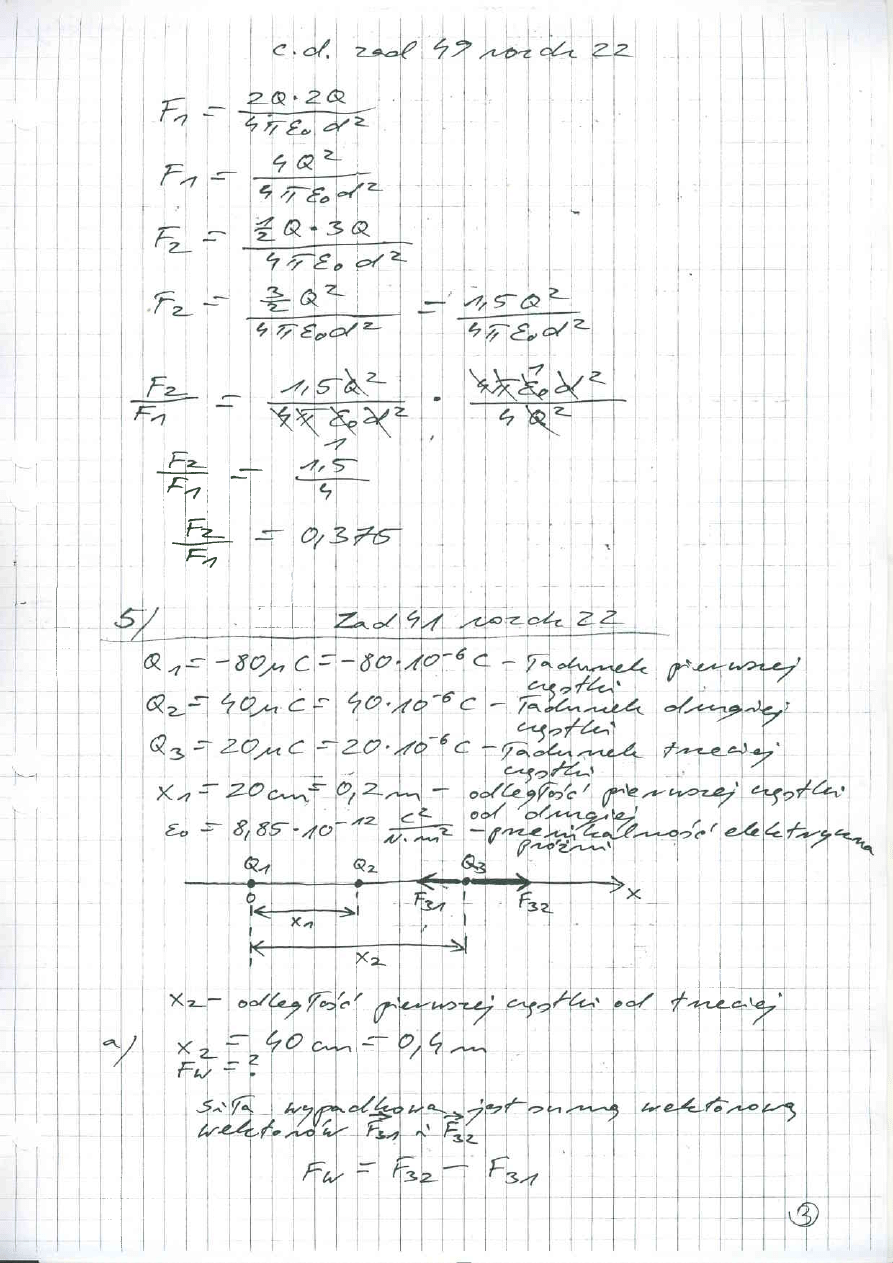 c.d. zad 49 rozdz 22
F₁ = 2Q·2Q / 4πε₀d²
F₁ = 4Q² / 4πε₀d²
F₂ = ½Q·3Q / 4πε₀d²
F₂ = 3/2 Q² / 4πε₀d² = 1,5Q² / 4πε₀d²
F₂/F₁ = 1,5Q² / 4πε₀d² · 4πε₀d² / 4Q²
F₂/F₁ = 1,5 / 4
F₂/F₁ = 0,375
5/ Zad 41 rozdz 22
Q₁ = -80μC = -80·10⁻⁶C - ładunek pierwszej
cząstki
Q₂ = 40μC = 40·10⁻⁶C - ładunek drugiej
cząstki
Q₃ = 20μC = 20·10⁻⁶C - ładunek trzeciej
cząstki
x₁ = 20cm = 0,2m - odległość pierwszej cząstki
od drugiej
ε₀ = 8,85·10⁻¹² C²/N·m² - przenikalność elektryczna
próżni
Q₁ Q₂ Q₃
0 F₃₁ F₃₂ x
x₁
x₂
x₂ - odległość pierwszej cząstki od trzeciej
a/ x₂ = 40cm = 0,4m
Fw = ?
siła wypadkowa jest sumą wektorową
wektorów F₃₁ i F₃₂
Fw = F₃₂ - F₃₁
3